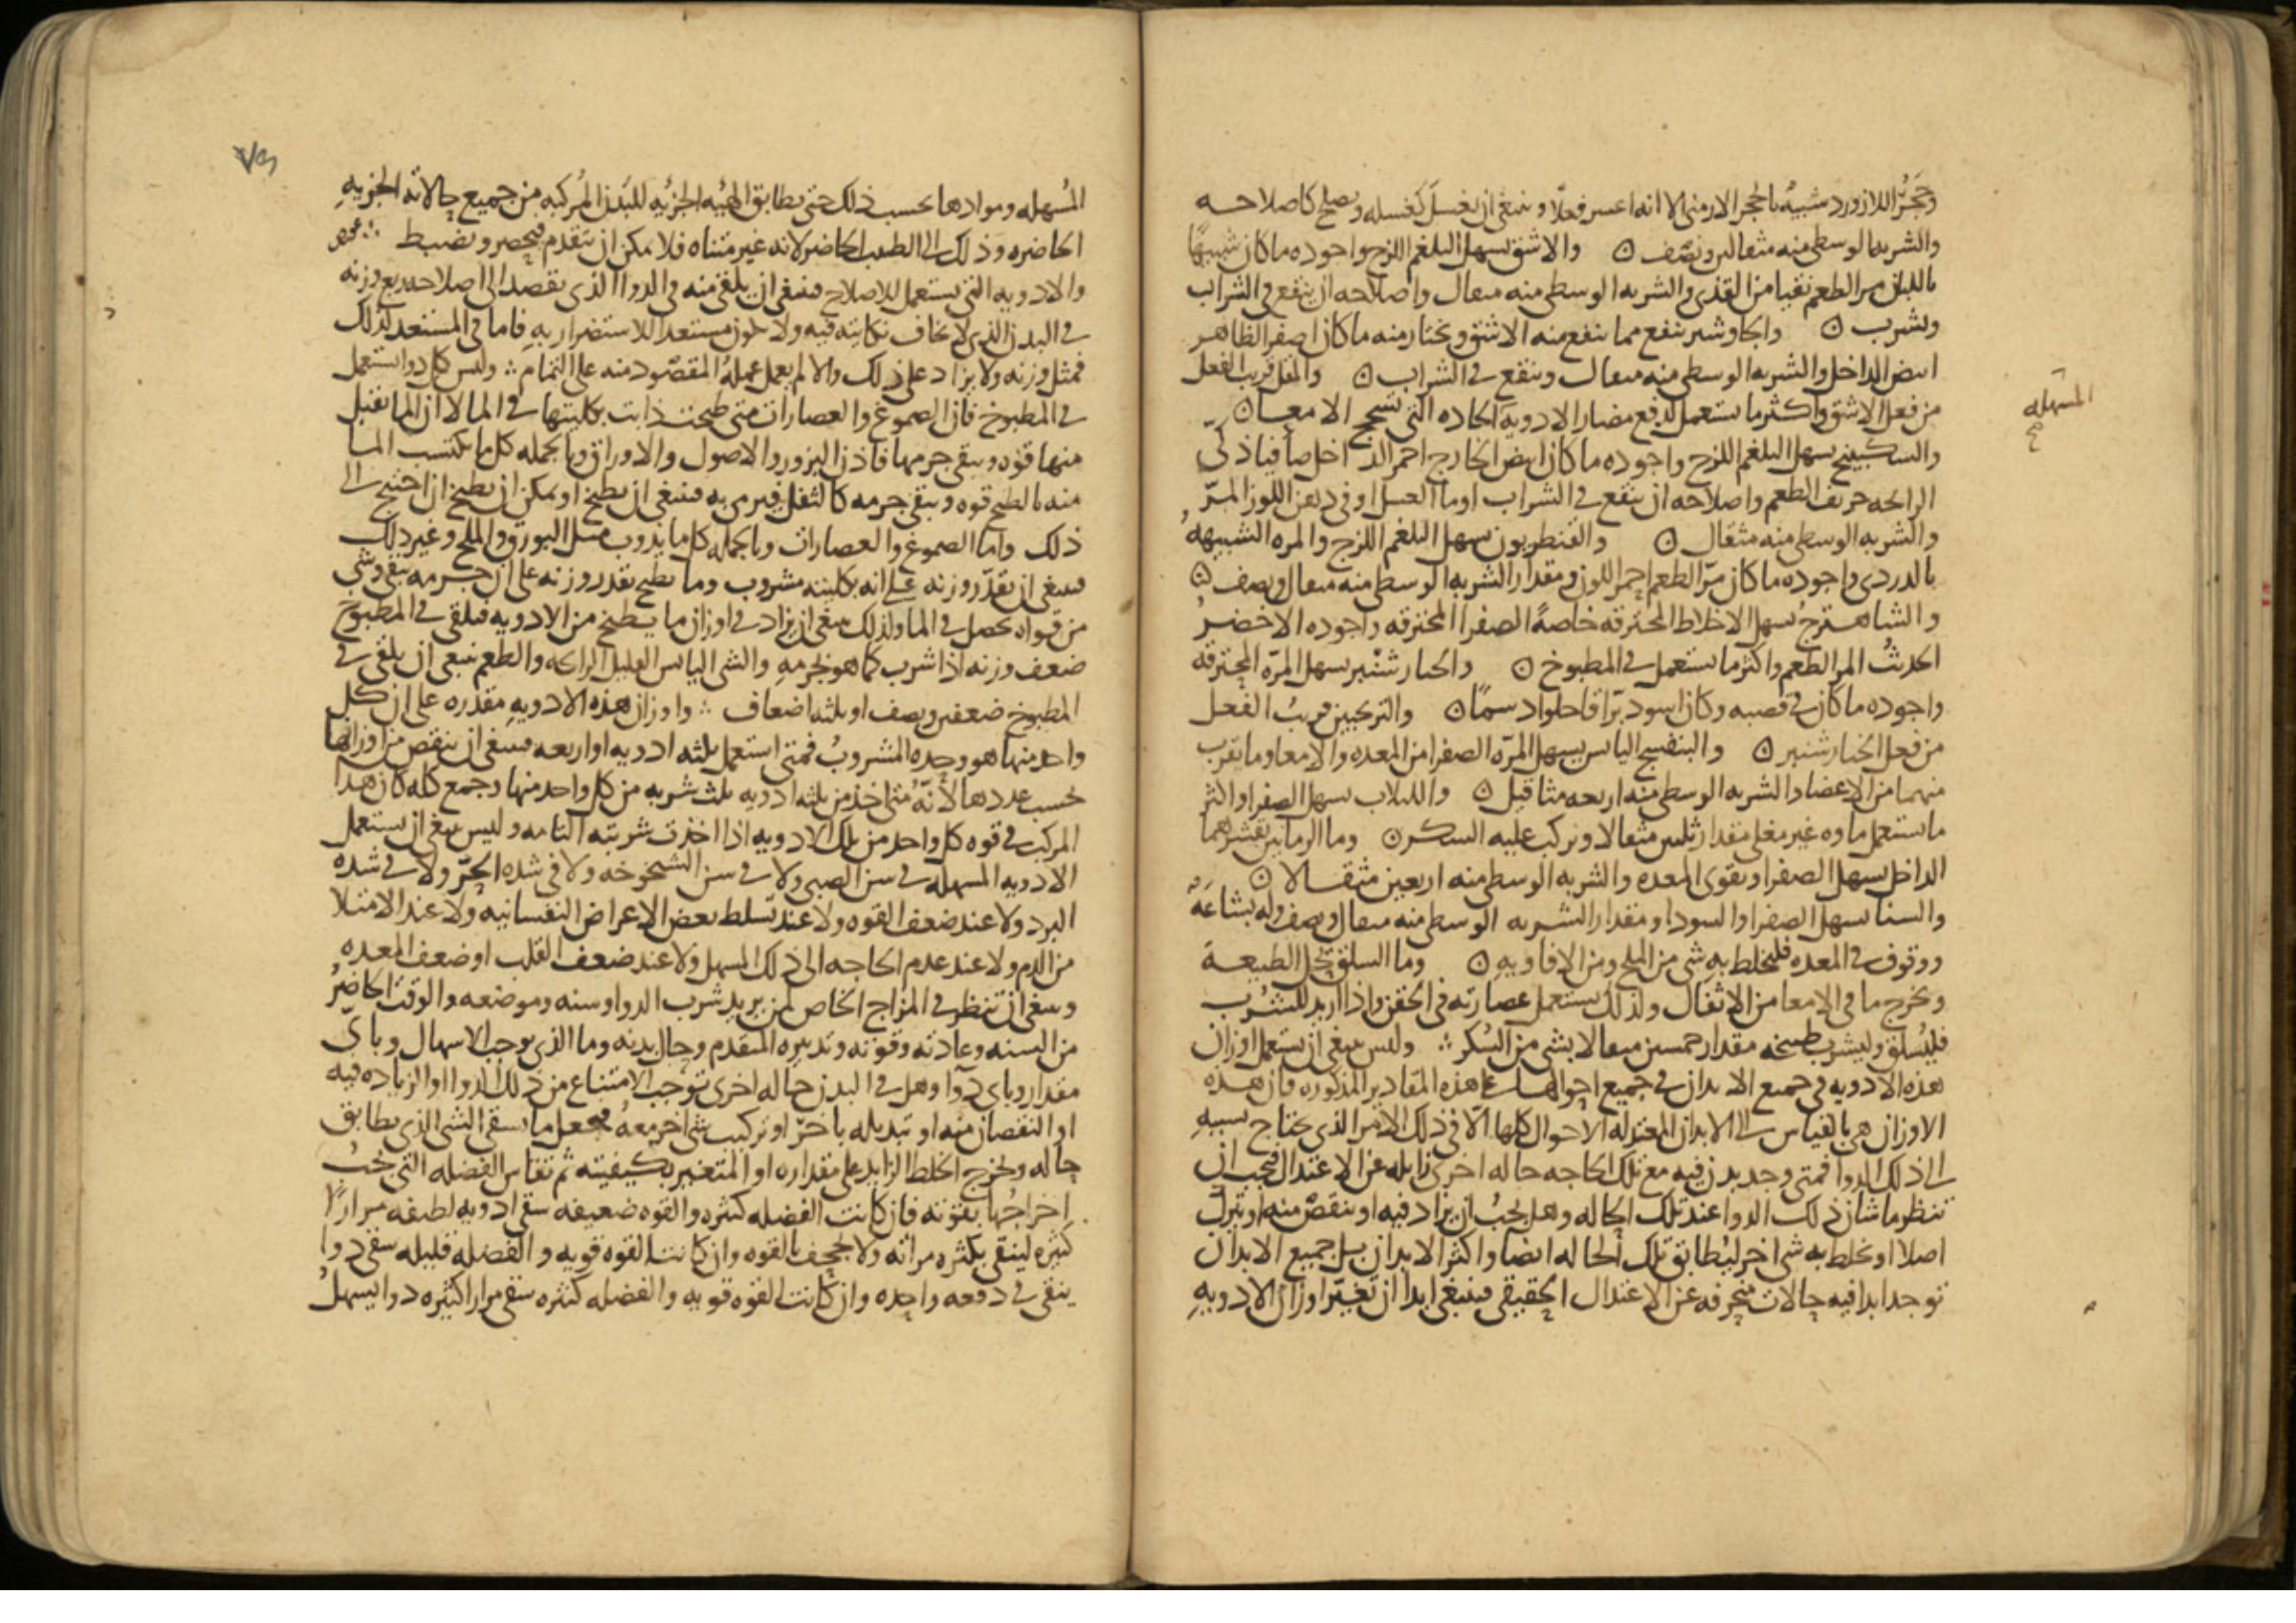 وحَجَرُ اللازورد شبيهٌ بالحجر الارمنى الا انه اعسر فعلاً وينبغى ان يغسل كغسله ويصلح كاصلاحه
والشربه الوسطى منه مثقالين ونصف ن والاشق يسهل البلغم اللزج واجوده ما كان شبيهًا
باللبان مر الطعم نقيا من القذى والشربه الوسطى منه مثقال واصلاحه ان ينقع فى الشراب
ويشرب ن والجاوشير ينفع مما ينفع منه الاشق ويختار منه ما كان اصفر الظاهر
ابيض الداخل والشربه الوسطى منه مثقال وينقع فى الشراب ن والمقل قريب الفعل
من فعل الاشق واكثر ما يستعمل لدفع مضار الادويه الحاده التى تسحج الامعا ن
والسكبينج يسهل البلغم اللزج واجوده ما كان ابيض الخارج احمر الداخل صافيا ذكىّ
الرائحه حريف الطعم واصلاحه ان ينقع فى الشراب او ما العسل او فى دهن اللوز المرّ
والشربه الوسطى منه مثقال ن والقنطريون يسهل البلغم اللزج والمره الشبيهه
بالدردى واجوده ما كان مرّ الطعم احمر اللون ومقدار الشربه الوسطى منه مثقال ونصف ن
والشاهترج يسهل الاخلاط المحترقه خاصةً الصفرا المحترقه واجوده الاخضر
الحديثُ المر الطعم واكثر ما يستعمل فى المطبوخ ن والخيار شنبر يسهل المرّه المحترقه
واجوده ما كان فى قصبه وكان اسود برّاقا حلوا دسمًا ن والترنجبين قريبُ الفعل
من فعل الخيار شنبر ن والبنفسج اليابس يسهل المرّه الصفرا من المعده والامعا وما يقرب
منهما من الاعضا والشربه الوسطى منه اربعه مثاقيل ن واللبلاب يسهل الصفرا واكثر
ما يستعمل ماوه غير مغلى مقدار ثلثين مثقالا ويركب عليه السكر ن وما الرمانين بقشرهما
الداخل يسهل الصفرا ويقوى المعده والشربه الوسطى منه اربعين مثقالا ن
والسنا يسهل الصفرا والسودا ومقدار الشربه الوسطى منه مثقال ونصف وله بشاعَه
ووقوف فى المعده فليخلط به شى من الملح ومن الافاويه ن وما السلق يحل الطبيعة
ويخرج ما فى الامعا من الاثفال ولذلك يستعمل عصارته فى الحقن واذا اريد للشُرب
فليُسلق وليشرب طبيخه مقدار خمسين مثقالا بشى من السُكر ∴ وليس ينبغى ان يستعمل اوزان
هذه الادويه فى جميع الابدان فى جميع احوالها على هذه المقادير المذكوره فان هذه
الاوزان هى بالقياس الى الابدان المعتدله الاحوال كلها الا فى ذلك الامر الذى يحتاج بسببه
الى ذلك الدوا فمتى وجد بدن فيه مع تلك الحاجه حاله اخرى زايله عن الاعتدال فيجب ان
ننظر ما شان ذلك الدوا عند تلك الحاله وهل يجبُ ان يزاد فيه او ينقصَ منه او يترك
اصلا او يخلط به شى اخر ليُطابق تلك الحاله ايضا واكثر الابدان بل جميع الابدان
توجد ابدا فيه حالات منحرفه عن الاعتدال الحقيقى فينبغى ابدا ان تغيّر اوزان الادويه
المسهله
المُسهله وموادها بحسب ذلك حتى يطابق الهيْه الجزئيه للبَدَن المُركبه من جميع حالاته الجزويه
الحاضره وذلك الى الطبيب الحاضر لانه غير متناه فلا يمكن ان يتقدم فيحصر ويضبط ∴
والادويه التى يستعمل للاصلاح فينبغى ان يلقى منه فى الدوا الذى يقصد الى اصلاحه ربع وزنه
فى البدن الذى لا يخاف نكايته فيه ولا يكون مستعدا للاستضرار به فاما فى المستعد لذلك
فمثل وزنه ولا يزاد على ذلك والا لم يعمل عملهُ المقصُود منه على التمام ∴ وليس كل دوا يستعمل
فى المطبوخ فان الصموغ والعصارات متى طبخت ذابت بكليتها فى الما لا ان الما يقبل
منها قوه ويبقى جرمها فاذن البزور والاصول والاوراق وبالجمله كل ما يكتسب الما
منه بالطبخ قوه ويبقى جرمه كالثفل فيرمى به فينبغى ان يطبخ او يمكن ان يطبخ ان احتيج الى
ذلك واما الصموغ والعصارات وبالجمله كل ما يذوب مثل البورق والملح وغير ذلك
فينبغى ان يقدّر وزنه على انه بكليته مشروب وما يطبخ يقدر وزنه على ان جرمه يبقى وشى
من قواه يحصل فى الما ولذلك ينبغى ان يزاد فى اوزان ما يطبخ من الادويه فيلقى فى المطبوخ
ضعف وزنه اذا شرب كما هو بجرمه والشى اليابس القليل الرائحه والطعم ينبغى ان يلقى فى
المطبوخ ضعفين ونصف او ثلثه اضعاف ∴ واوزان هذه الادويه مقدره على ان كل
واحد منها هو وحده المشروبُ فمتى استعمل ثلثه ادويه او اربعه فينبغى ان ينقص من اوزانها
بحسب عددها لأنّه متى اخذ من ثلثه ادويه ثلث شربه من كل واحد منها وجمع كله كان هذا
المركب فى قوه كل واحد من تلك الادويه اذا اخذت شربته التامه وليس ينبغى ان يستعمل
الادويه المسهله فى سن الصبى ولا فى سن الشيخوخه ولا فى شده الحرّ ولا فى شده
البرد ولا عند ضعف القوه ولا عند تسلط بعض الاعراض النفسانيه ولا عند الامتلا
من الدم ولا عند عدم الحاجه الى ذلك المسهل ولا عند ضعف القلب او ضعف المعده
وينبغى ان تنظر فى المزاج الخاص لمن يريد شرب الدوا وسنه وموضعه والوقت الحاضرُ
من السنه وعادته وقوته وتدبيره المتقدم وحال بدنه وما الذى يوجب الاسهال وباىّ
مقدار وباى دوا وهل فى البدن حاله اخرى توجب الامتناع من ذلك الدوا او الزياده فيه
او النقصان منه او تبديله باخرّ او تركيب شى اخر معه فيجعل ما يسقى الشى الذى يطابق
حاله ويخرج الخلط الزايد على مقداره او المتغير بكيفيته ثم تقاس الفضله التى يجبُ
اخراجُها بقوته فان كانت الفضله كثيره والقوه ضعيفه سقى ادويه لطيفه مرارًا
كثيره لينقى بكثره مراته ولا يجحف بالقوه وان كانت القوه قويه والفضله قليله سقى دوا
ينقى فى دفعه واحده وان كانت القوه قويه والفضله كثيره سقى مرارا كثيره دوا يسهلُ